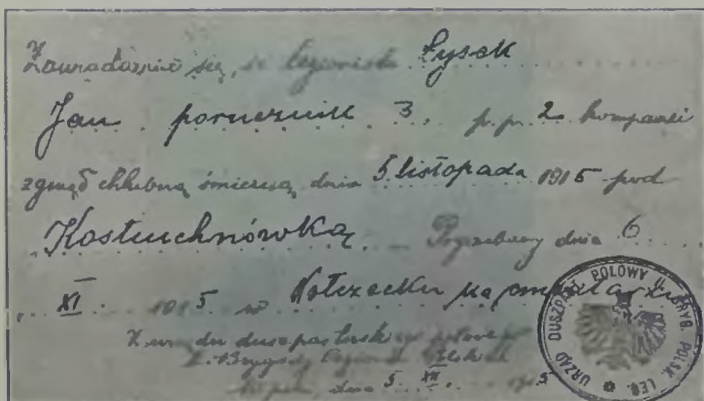 Zawiadamia się, że legionista Łysek
Jan porucznik 3. p.p. 2 kompanii
zginął chlubną śmiercią dnia 5 listopada 1915 pod
Kostiuchnówką. Pogrzebany dnia 6
XI 1915 w na cmentarzu
Z urzędu duszpasterskiego polowego
Brygady Legionów Polskich
dnia 5. XII. 1915
URZĄD DUSZPAST. POLOWY II. BRYG. POLSK. LEG.